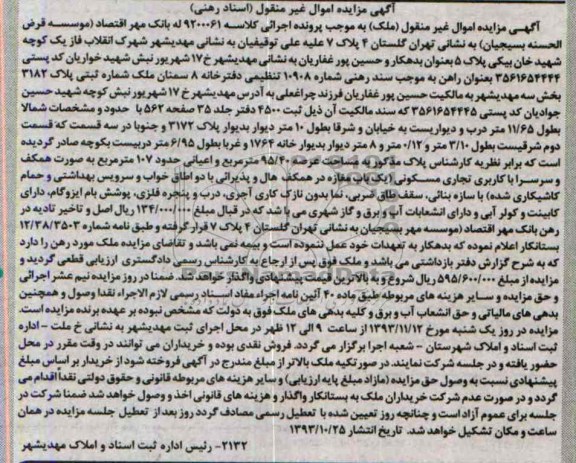 آگهی مزایده اموال غیر منقول (اسناد رهنی)
آگهی مزایده اموال غیر منقول (ملک) به موجب پرونده اجرائی کلاسه ۹۲۰۰۰۶۱ له بانک مهر اقتصاد (موسسه قرض
الحسنه بسیجیان) به نشانی تهران گلستان ۴ پلاک ۷ علیه علی توقیفیان به نشانی مهدیشهر شهرک انقلاب فاز یک کوچه
شهید خان بیکی پلاک ۵ بعنوان بدهکار و حسین پور غفاریان به نشانی مهدیشهر خ ۱۷ شهریور نبش شهید خواریان کد پستی
۳۵۶۱۶۵۴۴۴۴ بعنوان راهن به موجب سند رهنی شماره ۱۰۹۰۸ تنظیمی دفترخانه ۸ سمنان ملک شماره ثبتی پلاک ۳۱۸۲
بخش سه مهدیشهر به مالکیت حسین پور غفاریان فرزند چراغعلی به آدرس مهدیشهر خ ۱۷ شهریور نبش کوچه شهید حسین
جوادیان کد پستی ۳۵۶۱۶۵۴۴۴۵ که سند مالکیت آن ذیل ثبت ۴۵۰۰ دفتر جلد ۳۵ صفحه ۵۶۲ با حدود و مشخصات شمالا
بطول ۱۱/۶۵ متر درب و دیواریست به خیابان و شرقا بطول ۱۰ متر دیوار بدیوار پلاک ۳۱۷۲ و جنوبا در سه قسمت که قسمت
دوم شرقیست بطول ۳/۱۰ متر و ۰/۱۲ متر و ۸ متر دیوار بدیوار خانه ۱۷۶۲ و غربا بطول ۶/۹۵ متر دربیست بکوچه صادر گردیده
است که برابر نظریه کارشناس پلاک مذکور به مساحت عرصه ۹۵/۴۰ مترمربع و اعیانی حدود ۱۰۷ مترمربع به صورت همکف
و سرسرا با کاربری تجاری مسکونی (یک باب مغازه در همکف هال و پذیرائی با دو اطاق خواب و سرویس بهداشتی و حمام
کاشیکاری شده) با سازه بنائی، سقف طاق ضربی، نما بدون نازک کاری آجری، درب و پنجره فلزی، پوشش بام ایزوگام، دارای
کابینت و کولر آبی و دارای انشعابات آب و برق و گاز شهری می باشد که در قبال مبلغ ۱۳۴/۰۰۰/۰۰۰ ریال اصل و تاخیر تادیه در
رهن بانک مهر اقتصاد (موسسه مهر بسیجیان به نشانی تهران گلستان ۴ پلاک ۷ قرار گرفته و طبق نامه شماره ۱۲/۳۸/۳۵۰۳
بستانکار اعلام نموده که بدهکار به تعهدات خود عمل ننموده است و بیمه نمی باشد و تقاضای مزایده ملک مورد رهن را دارد
که به شرح گزارش دفتر بازداشتی می باشد و ملک فوق پس از ارجاع به کارشناس رسمی دادگستری ارزیابی قطعی گردید و
مزایده از مبلغ ۵۹۵/۶۰۰/۰۰۰ ریال شروع و به بالاترین قیمت پیشنهادی واگذار خواهد شد. ضمنا در روز مزایده نیم عشر اجرائی
و حق مزایده و سایر هزینه های مربوطه طبق ماده ۴۰ آئین نامه اجراء مفاد اسناد رسمی لازم الاجراء نقدا وصول و همچنین
بدهی های مالیاتی و حق انشعاب آب و برق و کلیه بدهی های ملک فوق به دولت که مشخص نبوده بر عهده برنده مزایده است.
مزایده در روز یک شنبه مورخ ۱۳۹۳/۱۱/۱۲ از ساعت ۹ الی ۱۲ ظهر در محل اجرای ثبت مهدیشهر به نشانی خ ملت - اداره
ثبت اسناد و املاک شهرستان - شعبه اجرا برگزار می گردد. فروش نقدی بوده و خریداران می توانند در وقت مقرر در محل
حضور یافته و در جلسه شرکت نمایند. در صورتکیه ملک بالاتر از مبلغ مندرج در آگهی فروخته شود از خریدار بر اساس مبلغ
پیشنهادی نسبت به وصول حق مزایده (مازاد مبلغ پایه ارزیابی) و سایر هزینه های مربوطه قانونی و حقوق دولتی نقداً اقدام می
گردد و در صورت عدم شرکت خریداران ملک به بستانکار واگذار و هزینه های قانونی اخذ و وصول خواهد شد ضمنا شرکت در
جلسه برای عموم آزاد است و چنانچه روز تعیین شده با تعطیل رسمی مصادف گردد روز بعد از تعطیل جلسه مزایده در همان
ساعت و مکان تشکیل خواهد شد. تاریخ انتشار ۱۳۹۳/۱۰/۲۵
۲۱۳۲- رئیس اداره ثبت اسناد و املاک مهدیشهر